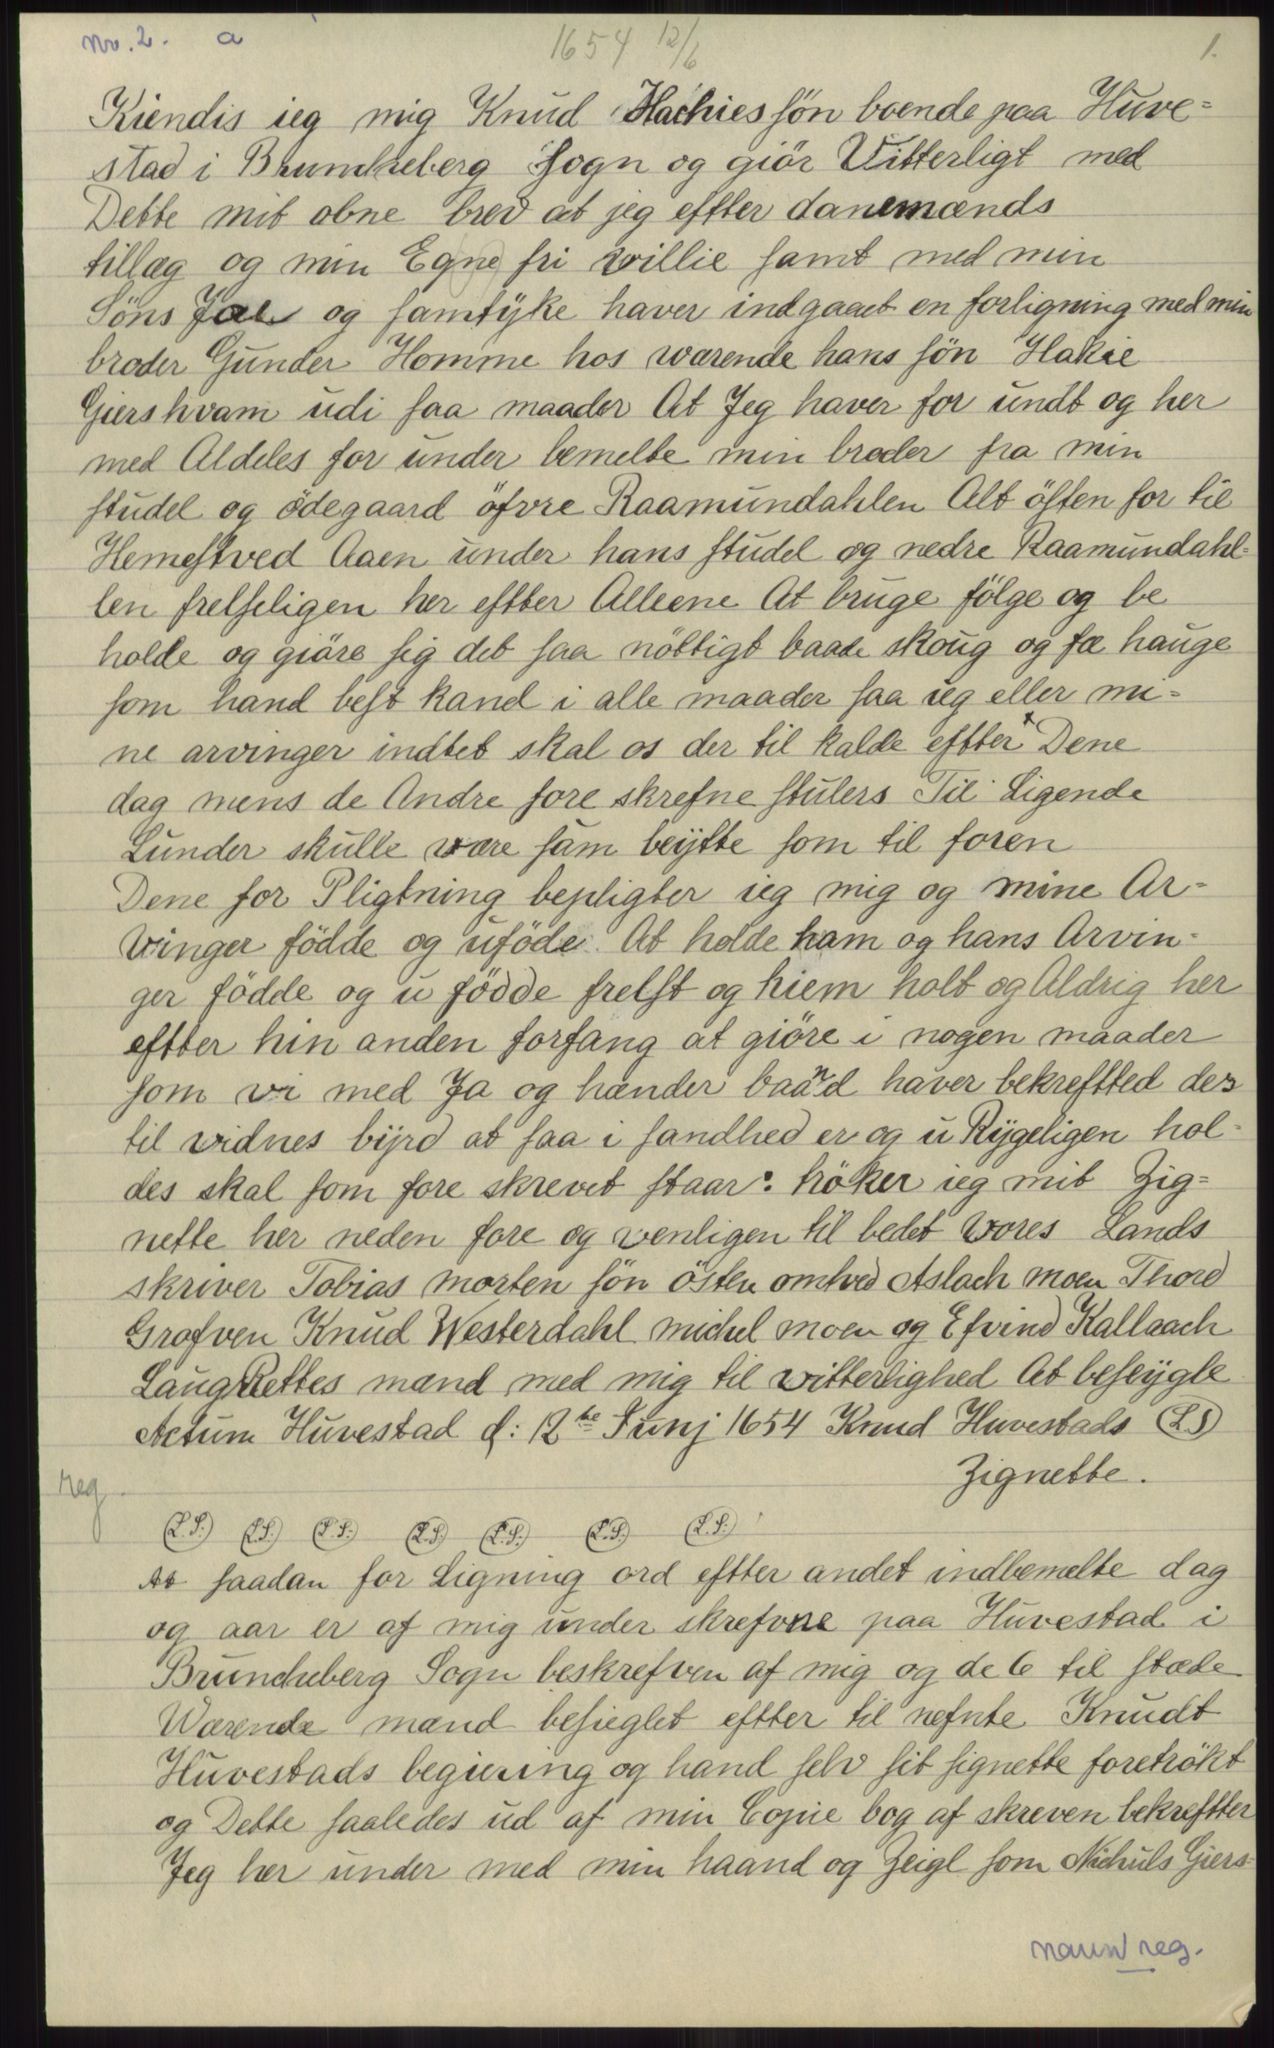 nv. 2. a 1654 12/6 1.
Kiendis ieg mig Knud Hachies søn boende paa Huve=
stad i Brunckeberg Sogn og giör Vitterligt med
Dette mit obne brev at jeg effter danemænds
tillæg og min Egne fri willie samt med min
Söns Jae og samtÿke haver indgaaet en forligning med min
broder Gunder Homme hos wærende hans sön Hakie
Giershvam udi saa maader At Jeg haver for undt og her
med Aldeles for under bemelte min broder fra min
studel og ödegaard öfvre Raamundahlen Alt östen for til
Hemestved Aaen under hans studel og nedre Raamundahl=
len frelseligen her effter Alleene At bruge fölge og be
holde og giöre sig det saa nöttigt baade skoug og fæ hauge
som hand best kand i alle maader saa ieg eller mi=
ne arvinger indtet skal os der til kalde effter x Dene
dag mens de Andre fore skrefne stulers Til Ligende
Lunder skulle være sam beÿtte som til foren
Dene for Pligtning bepligter ieg mig og mine Ar=
vinger födde og uföde At holde ham og hans Arvin=
ger födde og u födde frelst og hiem holt og Aldrig her
effter hin anden forfang at giöre i nogen maader
som vi med Ja og hænder baand haver bekreftted des
til vidnes bÿrd at saa i sandhed er og u Rÿgeligen hol=
des skal som fore skrevet staar: tröker ieg mit Zig=
nette her neden fore og venligen til bedet Vores Lands
skriver Tobias morten sön östen omtved Aslach moen Thord
Grofven Knud Westerdahl michel moen og Efvind Kallaach
LaugRettes mænd med mig til vitterlighed At beseÿgle
Actum Huvestad d: 12te Junj 1654 Knud Huvestads (LS)
Zignette.
reg.
(L.S.) (L.S.) (L.S.) (L.S.) (L.S.) (L.S.) (L.S.)
At saadan for Ligning ord effter andet indbemelte dag
og aar er af mig under skrefvne paa Huvestad i
Brunckeberg Sogn beskrefven af mig og de 6 til stæde
Wærende mænd besieglet effter til nefnte Knudt
Huvestads begiering og hand selv sit signette foretrökt
og Dette saaledes ud af min Copie bog af skreven bekreftter
Jeg her under med min haand og Zeigl som Nichuls Giers=
navn reg.